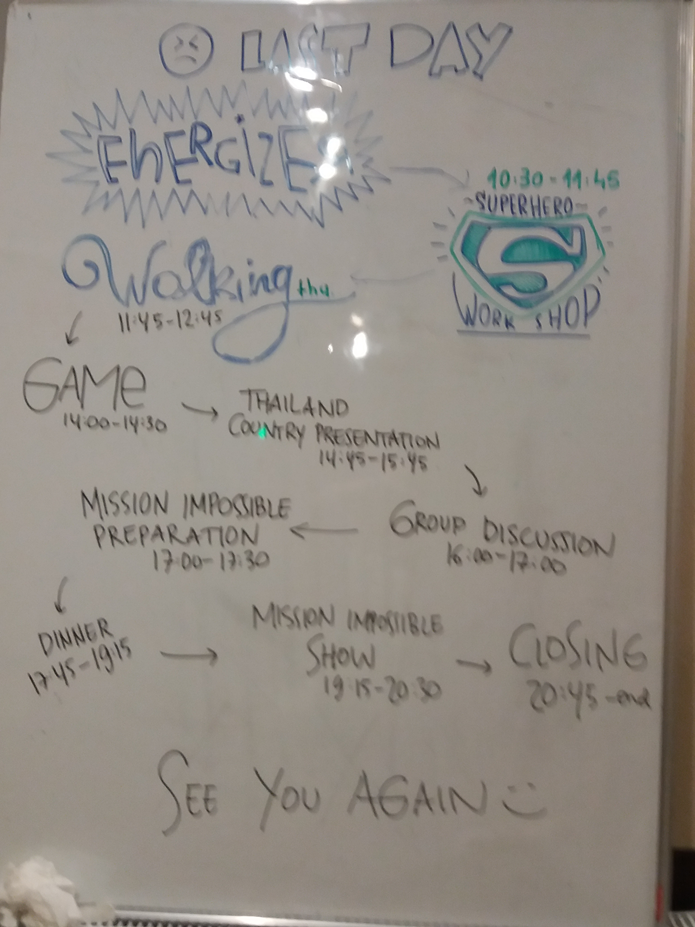 LAST DAY
ENERGIZER
10:30-11:45
SUPERHERO
S
WORK SHOP
Walking
11:45-12:45
GAME
14:00-14:30
THAILAND
COUNTRY PRESENTATION
14:45-15:45
GROUP DISCUSSION
16:00-17:00
MISSION IMPOSSIBLE
PREPARATION
17:00-17:30
DINNER
17:45-19:15
MISSION IMPOSSIBLE
SHOW
19:15-20:30
CLOSING
20:45-end
SEE YOU AGAIN